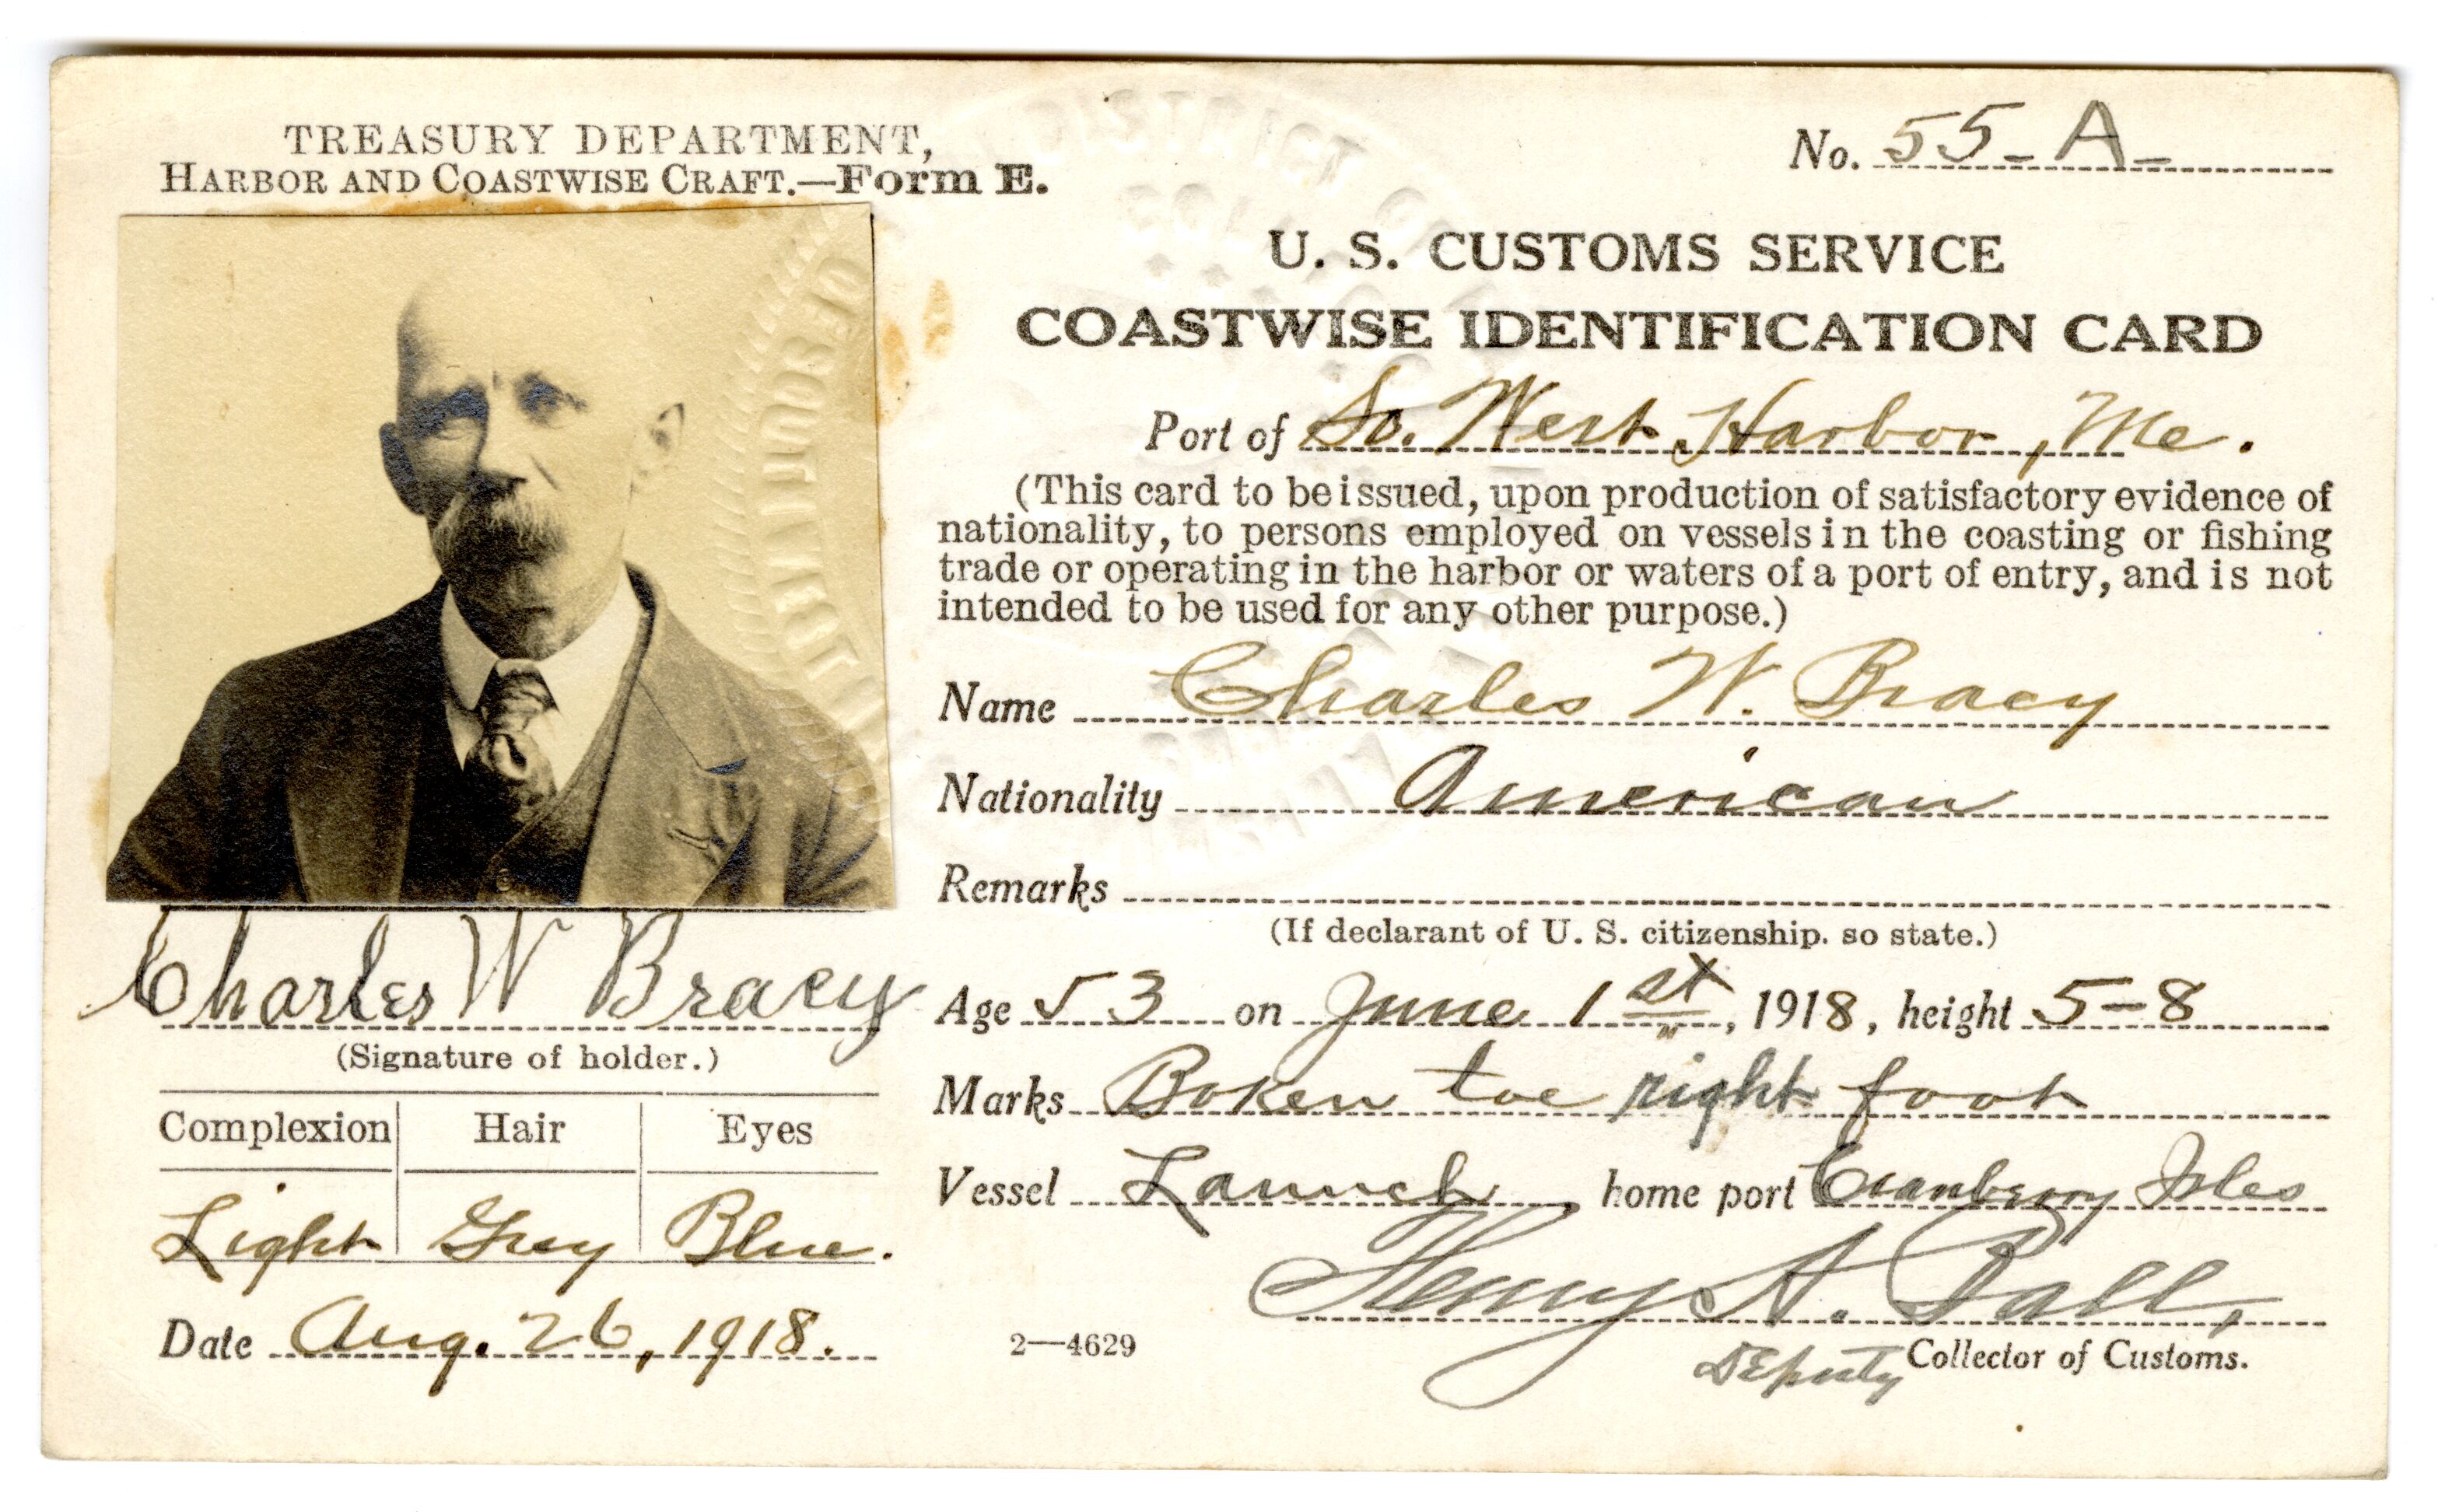 TREASURY DEPARTMENT,
HARBOR AND COASTWISE CRAFT.—Form E.
No. 55-A-
U. S. CUSTOMS SERVICE
COASTWISE IDENTIFICATION CARD
Port of So. West Harbor, Me.
(This card to be issued, upon production of satisfactory evidence of
nationality, to persons employed on vessels in the coasting or fishing
trade or operating in the harbor or waters of a port of entry, and is not
intended to be used for any other purpose.)
Name Charles W. Bracy
Nationality American
Remarks
(If declarant of U. S. citizenship. so state.)
Age 53 on June 1st, 1918, height 5-8
Marks Boken toe right foot
Vessel Launch, home port Cranberry Isles
Henry A. Ball,
Deputy Collector of Customs.
2—4629
OF SOUTHWEST
Charles W Bracy
(Signature of holder.)
Complexion Hair Eyes
Light Grey Blue.
Date Aug. 26, 1918.